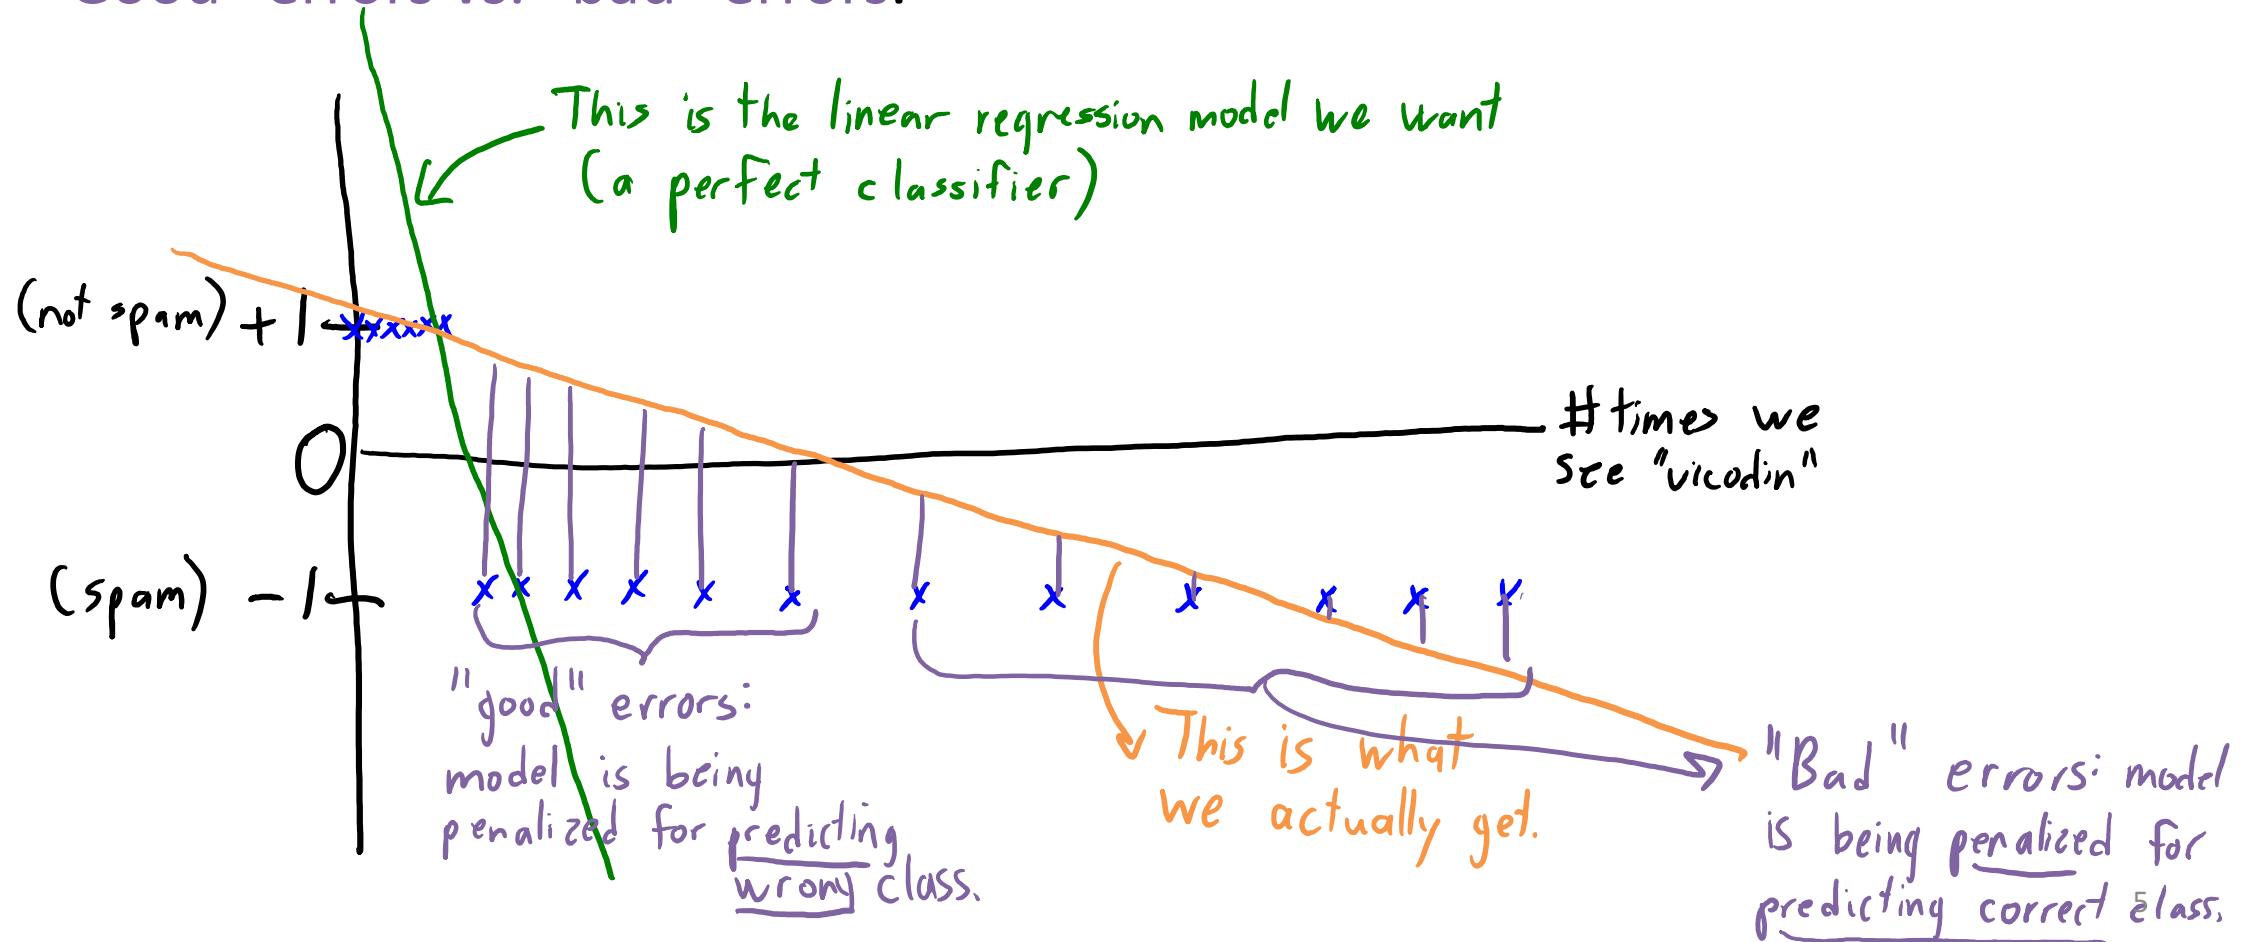 Good errors vs. bad errors.
This is the linear regression model we want
(a perfect classifier)
(not spam) +1
0
# times we
see "vicodin"
(spam) -1
"good" errors:
model is being
penalized for predicting
wrong class.
This is what
we actually get.
"Bad" errors: model
is being penalized for
predicting correct class.
5